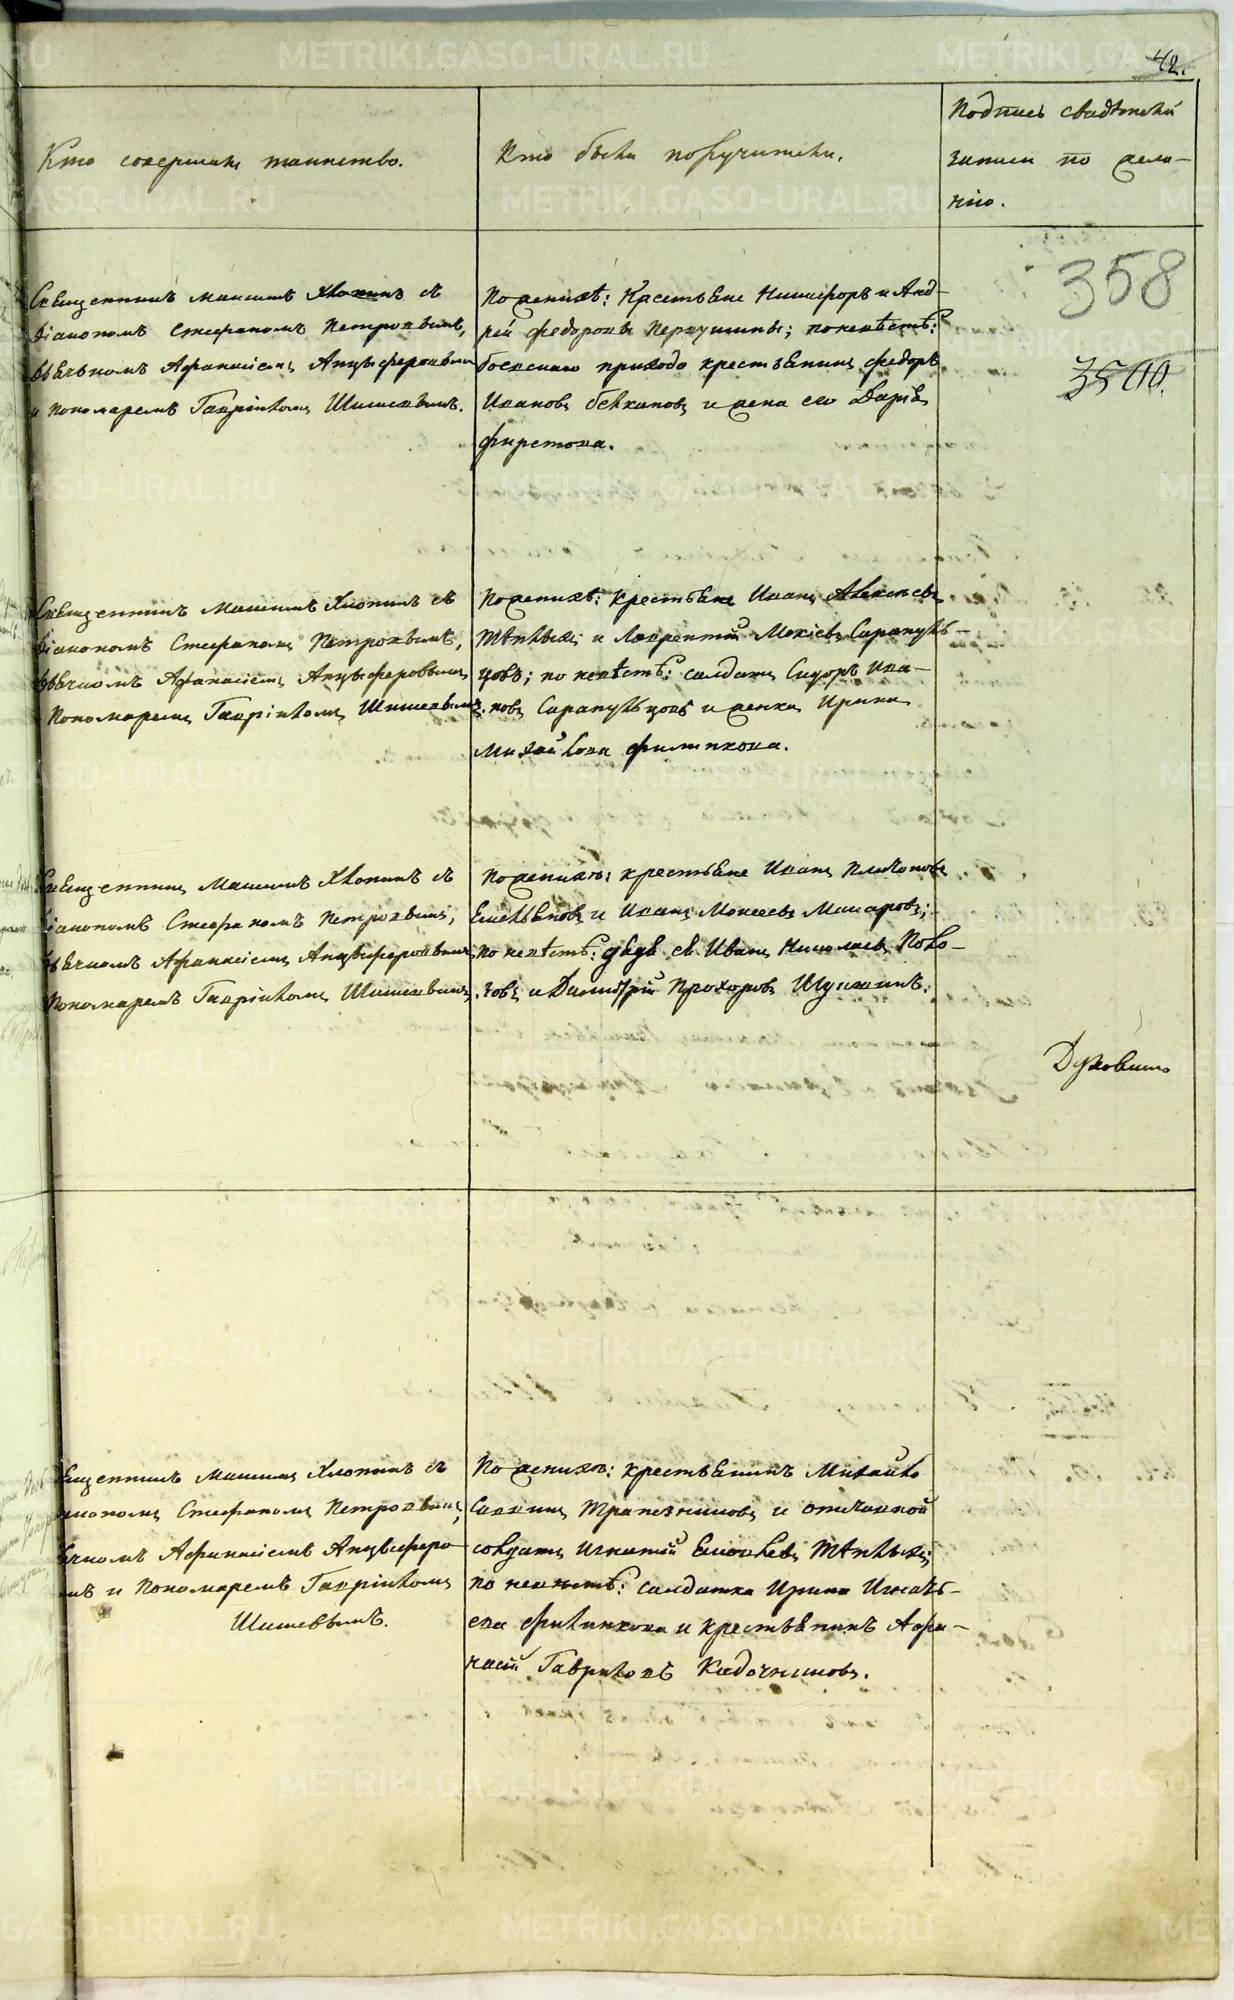 42.
Кто совершалъ таинство.
Кто были поручители.
Подпись свидѣтелей
записи по жела-
нію.
358
3500.
Священникъ Максимъ Хлопинъ съ
діакономъ Стефаномъ Петровымъ,
Аѳанасіемъ Анцыферовымъ
и пономаремъ Гавріиломъ Шишевымъ.
По женихѣ: Крестьяне Никифоръ и Анд-
рей Федоровы; по невѣстѣ:
прихода крестьянинъ Федоръ
Ивановъ и жена его Дарья
Фирстова.
Священникъ Максимъ Хлопинъ съ
діакономъ Стефаномъ Петровымъ,
Аѳанасіемъ Анцыферовымъ
Пономаремъ Гавріиломъ Шишевымъ.
По женихѣ: крестьяне Иванъ Алексѣевъ
Тяплыхъ и Лаврентій Мокіевъ Сарапуль-
цовъ; по невѣстѣ: солдатъ Сидоръ Ива-
новъ Сарапульцовъ и женка Ирина
Михайлова Филинкова.
Священникъ Максимъ Хлопинъ съ
діакономъ Стефаномъ Петровымъ,
Аѳанасіемъ Анцыферовымъ
Пономаремъ Гавріиломъ Шишевымъ.
По женихѣ: крестьяне Иванъ Платоновъ
Емельяновъ и Иванъ Мокеевъ Макаровъ;
по невѣстѣ: дядя ея Иванъ Николаевъ Поло-
зовъ и Димитрій Прохоровъ.
Духовныхъ
Максимъ Хлопинъ съ
Стефаномъ Петровымъ,
Аѳанасіемъ Анцыферо-
и Пономаремъ Гавріиломъ
Шишевымъ.
По женихѣ: крестьянинъ Михайло
Саввинъ Трапезниковъ и
солдатъ Игнатій Тяплыхъ;
по невѣстѣ: солдатка Ирина Игнать-
ева Филинкова и крестьянинъ Аѳа-
насій Гавриловъ Кадочниковъ.
METRIKI.GASO-URAL.RU